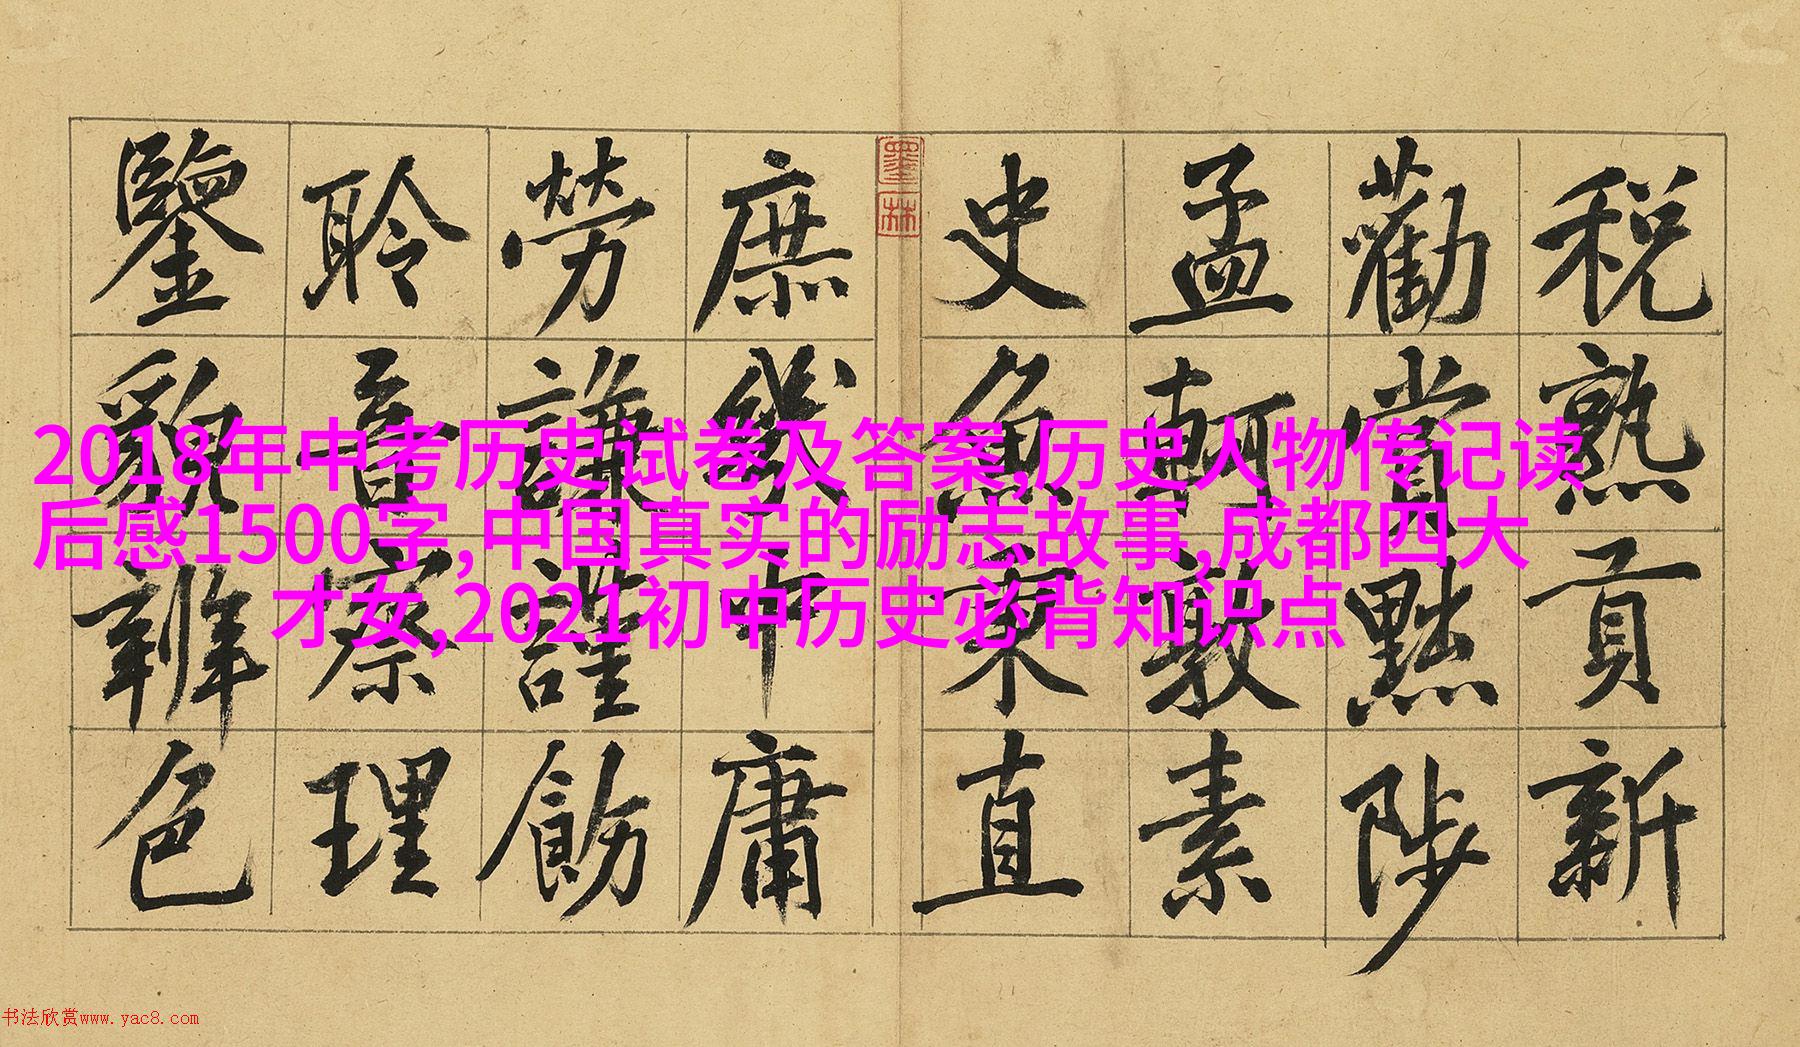 税熟貢新
勸賞黜陟
孟軻敦素
史魚秉直
墨林
庶幾中庸
勞謙謹飭
聆音察理
鑒貌辨色
2018年中考历史试卷及答案,历史人物传记读
后感1500字,中国真实的励志故事,成都四大
才女,2021初中历史必背知识点
书法欣赏www.yac8.com